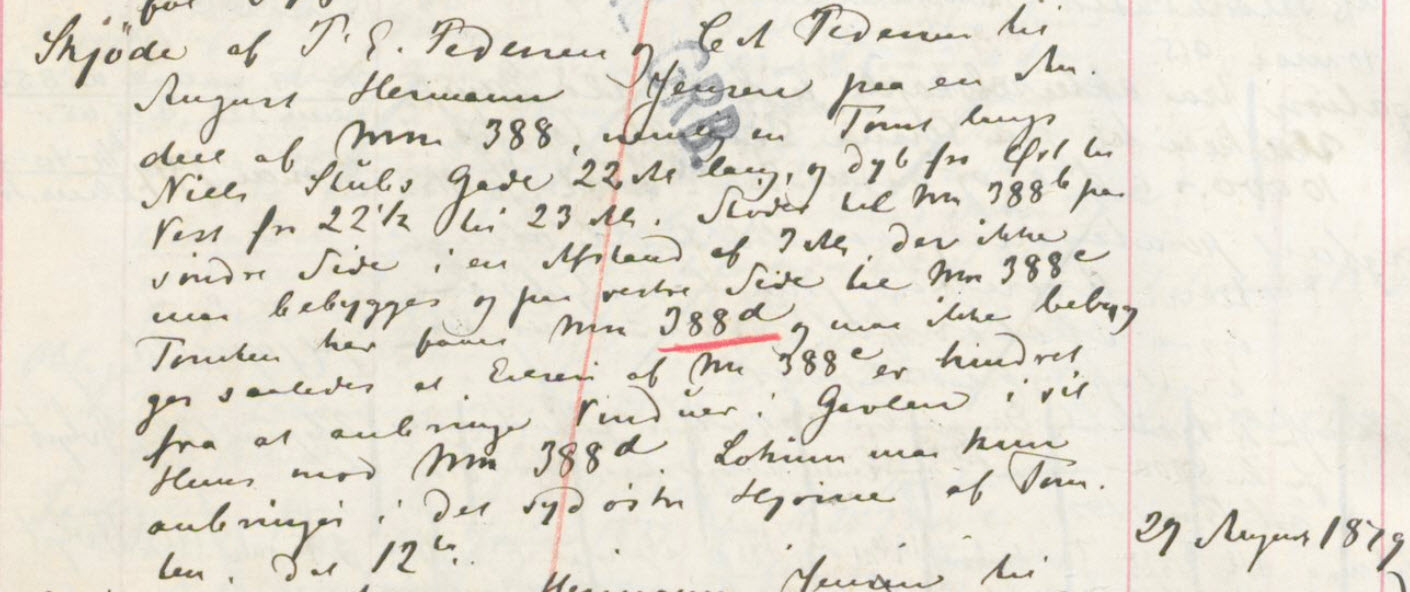 Skjöde af P. E. Pedersen og C A Pedersen til
August Hermann Jensen paa en An-
deel af Mnr 388, nemlig en Tomt langs
Niels Stubs Gade 22 Al lang, og dyb fra Øst til
Vest fra 22½ til 23 Al. Stöder til Mnr 388b paa
söndre Side i en Afstand af 3 Al, der ikke
maa bebygges og paa vestre Side til Mnr 388c
Tomten har faaet Mnr 388d og maa ikke bebyg
ges saaledes at Eieren af Mnr 388c er hindret
fra at anbringe Vinduer i Gavlen i sit
Huus mod Mnr 388d. Lokum maa kun
anbringes i det sydöstre Hjörne af Tom-
ten. Dat 12te
29 August 1879
Hermann Jensen til
CRB.